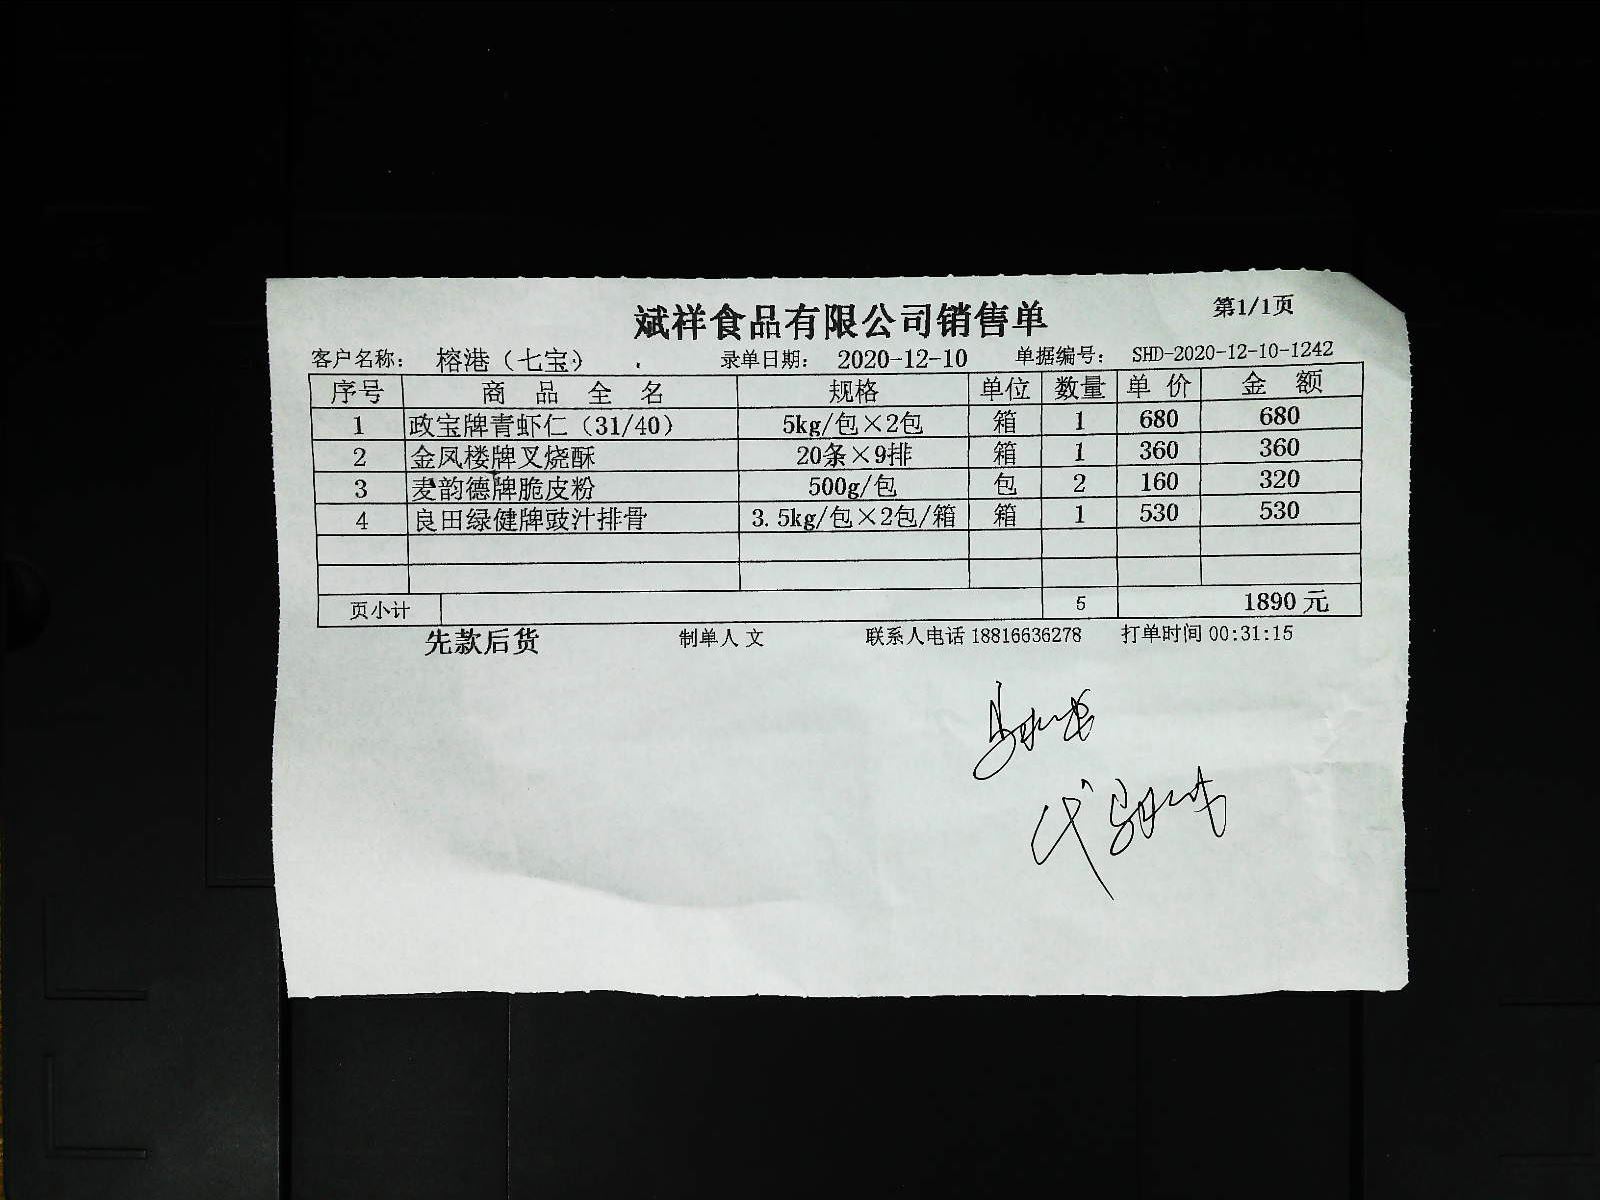 斌祥食品有限公司销售单 第1/1页
客户名称: 榕港（七宝） 录单日期: 2020-12-10 单据编号: SHD-2020-12-10-1242
序号 商品全名 规格 单位 数量 单价 金额
1 政宝牌青虾仁（31/40） 5kg/包×2包 箱 1 680 680
2 金凤楼牌叉烧酥 20条×9排 箱 1 360 360
3 麦韵德牌脆皮粉 500g/包 包 2 160 320
4 良田绿健牌豉汁排骨 3.5kg/包×2包/箱 箱 1 530 530
页小计 5 1890 元
先款后货 制单人 文 联系人电话 18816636278 打单时间 00:31:15
代